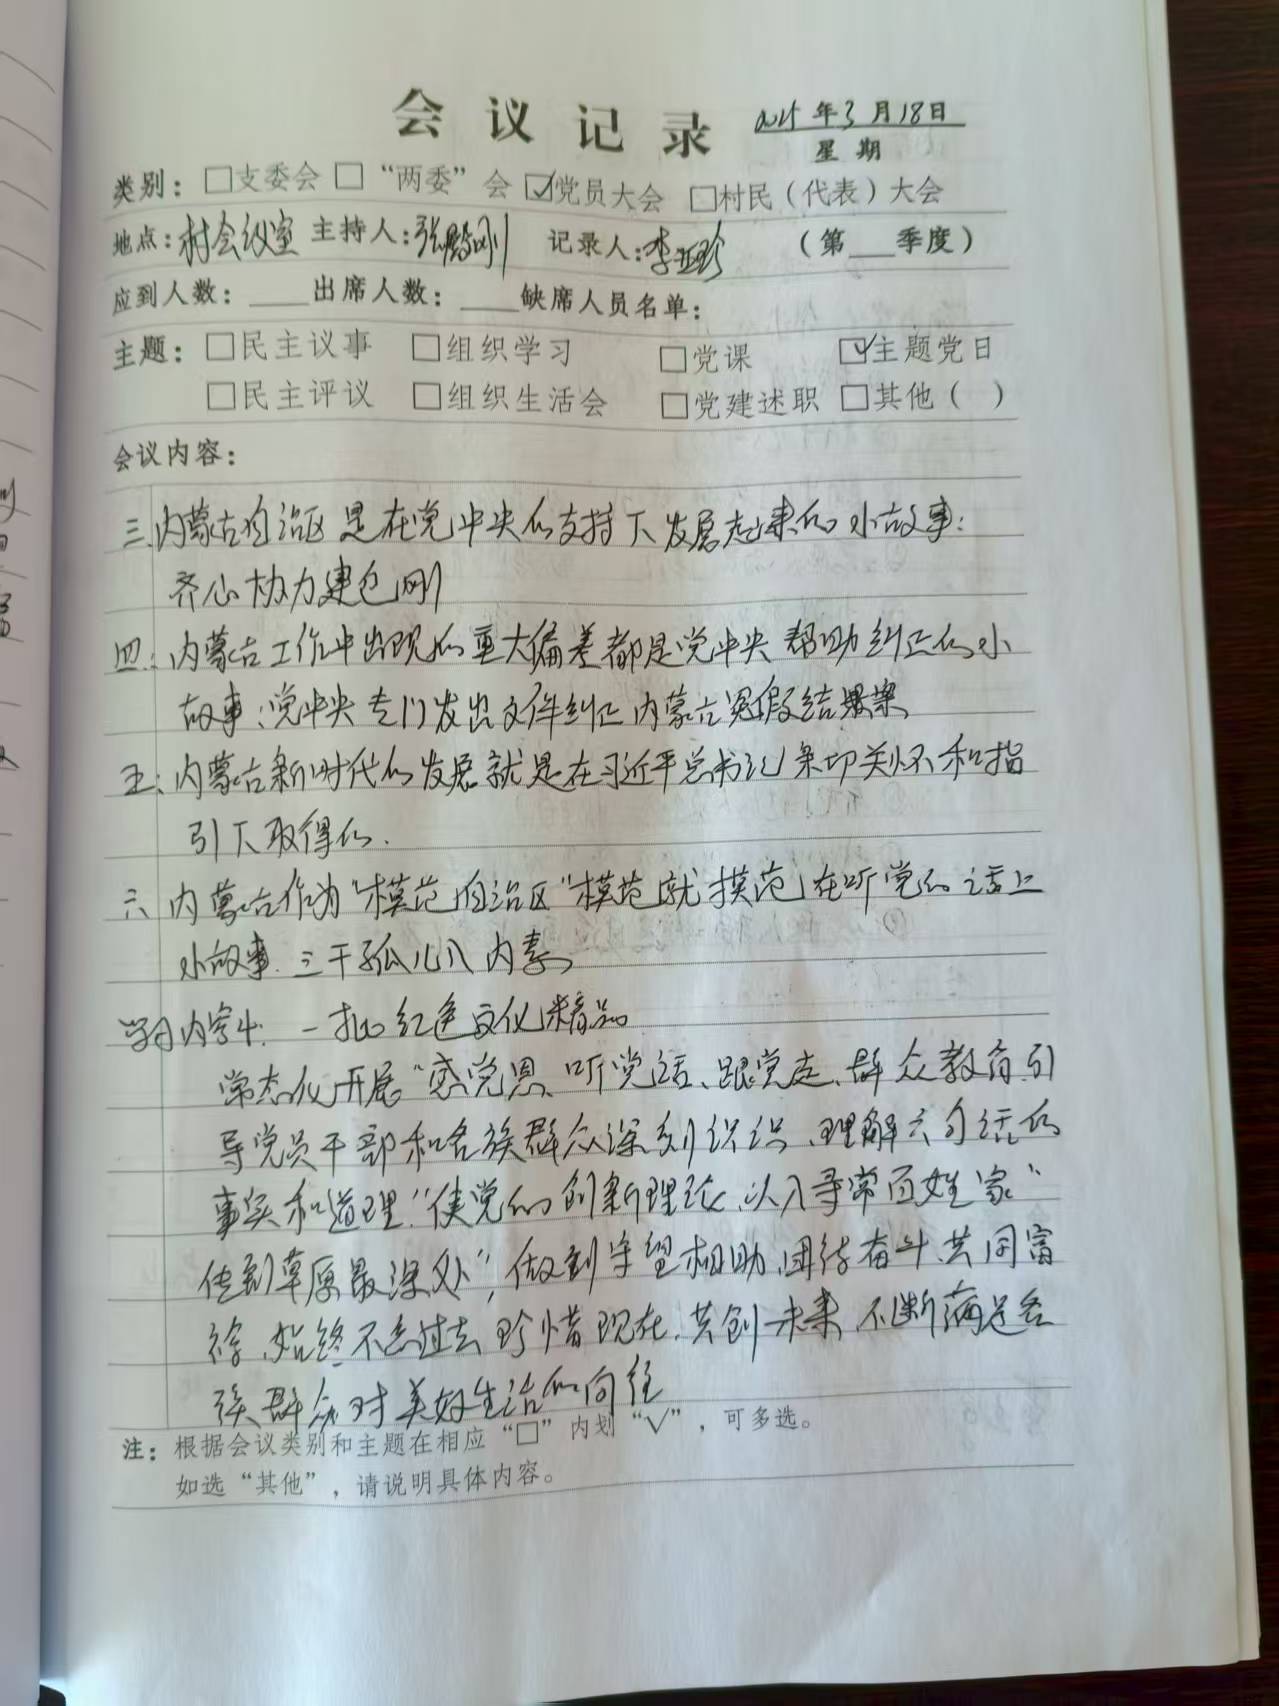 会议记录
2025年3月18日
星期
类别：□支委会 □“两委”会 ☑党员大会 □村民（代表）大会
地点：村会议室 主持人：张 刚 记录人：李亚珍 （第 季度）
应到人数： 出席人数： 缺席人员名单：
主题：□民主议事 □组织学习 □党课 ☑主题党日
□民主评议 □组织生活会 □党建述职 □其他（ ）
会议内容：
三、内蒙古自治区是在党中央的支持下发展起来的 小故事：
齐心协力建包刚
四：内蒙古工作中出现的重大偏差都是党中央帮助纠正的小
故事：党中央专门发出文件纠正内蒙古冤假 案
五：内蒙古新时代的发展就是在习近平总书记亲切关怀和指
引下取得的.
六 内蒙古作为“模范自治区”模范就模范在听党的话上
小故事.三千孤儿入内蒙
学习内容4: 一批红色文化精品
常态化开展“感党恩、听党话、跟党走、群众教育.引
导党员干部和各族群众深刻认识、理解六句话的
事实和道理.“使党的创新理论、从入寻常百姓家”
传到草原最深处”，做到守望相助、团结奋斗、共同富
裕、始终不忘过去 珍惜现在.共创未来.不断满足各
族群众对美好生活的向往
注：根据会议类别和主题在相应“□”内划“√”，可多选。
如选“其他”，请说明具体内容。